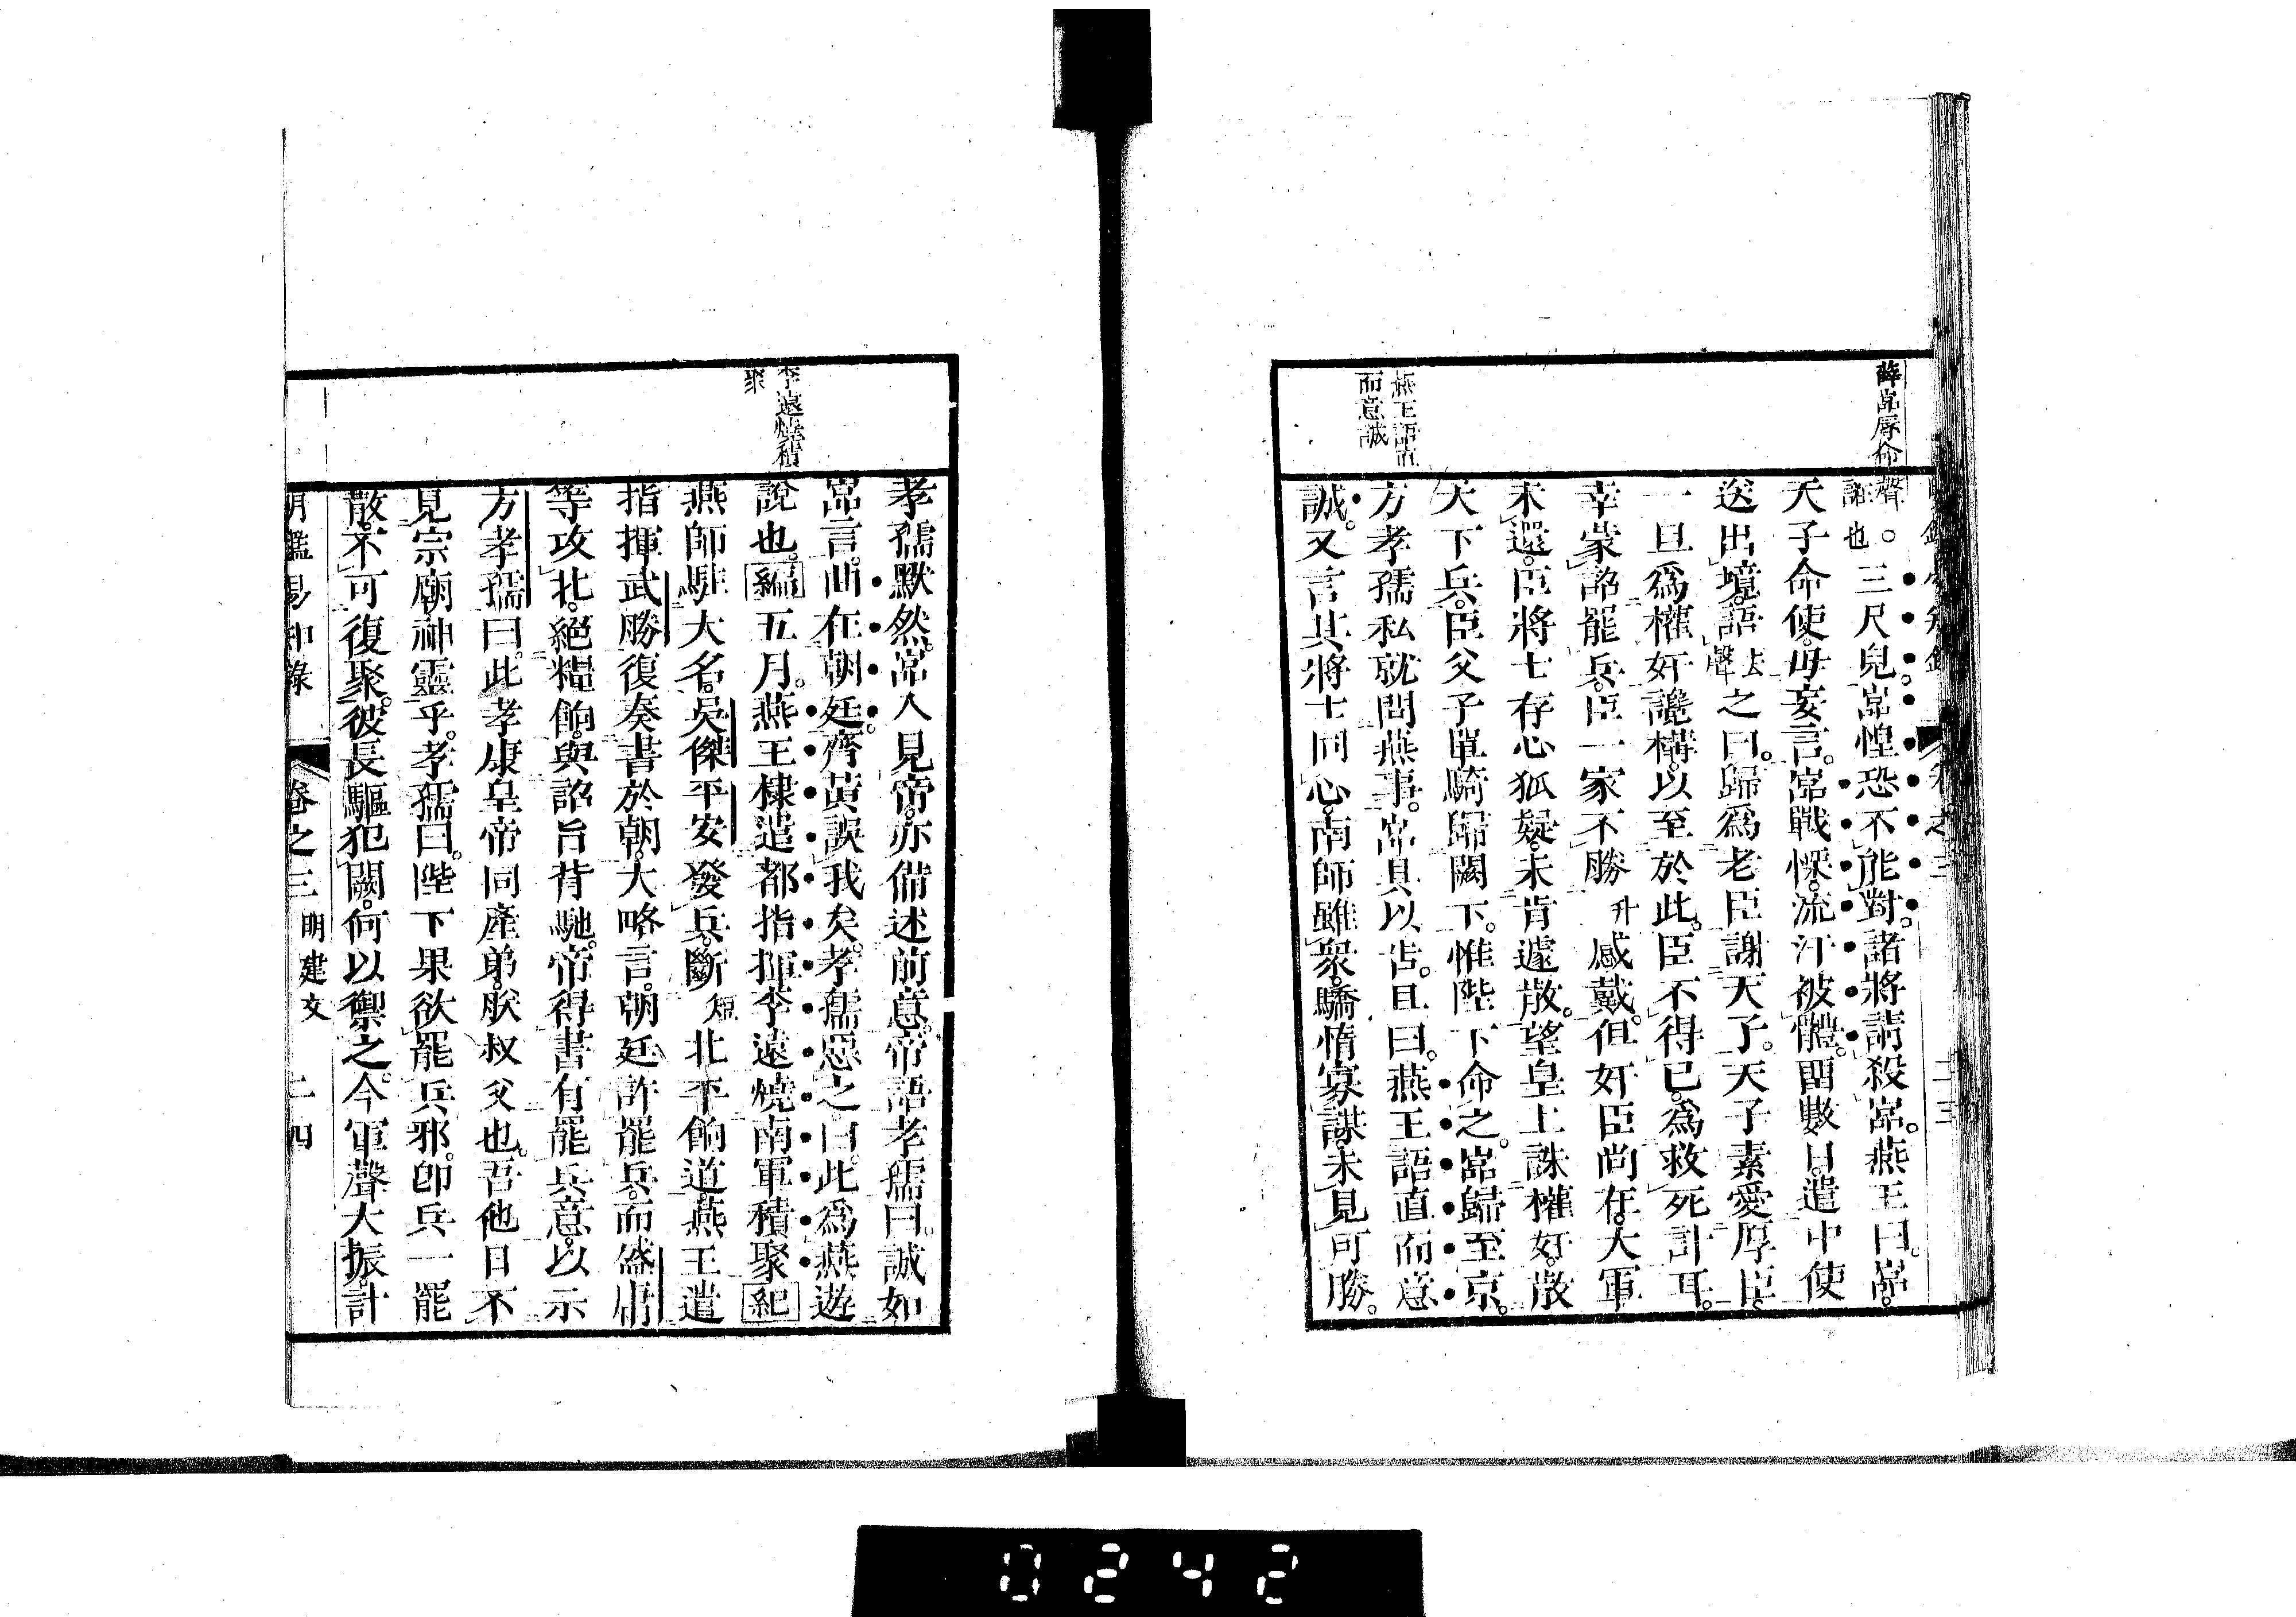 薛嵓辱命
聲。三尺兒。嵓惶恐不能對。諸將請殺嵓。燕王曰。嵓。
誑也
天子命使。毋妄言。嵓戰慄。流汗被體。留數日。遣中使
送出境。語去聲之曰。歸爲老臣謝天子。天子素愛厚臣。
一旦爲權奸讒構。以至於此。臣不得已。爲救死計耳。
幸蒙詔罷兵。臣一家不勝升感戴。但奸臣尚存。大軍
未還。臣將士存心狐疑。未肯遽散。望皇上誅權奸。散
天下兵。臣父子單騎歸闕下。惟陛下命之。嵓歸至京。
燕王語直
而意誠
方孝孺私就問燕事。嵓具以告。且曰。燕王語直而意
誠。又言其將士同心。南師雖衆。驕惰寡謀。未見可勝。
孝孺默然。嵓入見帝。亦備述前意。帝語孝孺曰。誠如
嵓言。曲在朝廷。齊黃誤我矣。孝孺惡之曰。此爲燕遊
李遠燒積
聚
說也。編五月。燕王棣遣都指揮李遠燒南軍積聚紀
燕師駐大名。吳傑平安發兵。斷短北平餉道。燕王遣
指揮武勝復奏書於朝。大略言。朝廷許罷兵。而盛庸
等攻北。絕糧餉。與詔旨背馳。帝得書有罷兵意。以示
方孝孺曰。此孝康皇帝同產弟。朕叔父也。吾他日不
見宗廟神靈乎。孝孺曰。陛下果欲罷兵邪。卽兵一罷
散。不可復聚。彼長驅犯闕。何以禦之。今軍聲大振。計
明鑑易知錄 卷之三 明建文 二四
0242